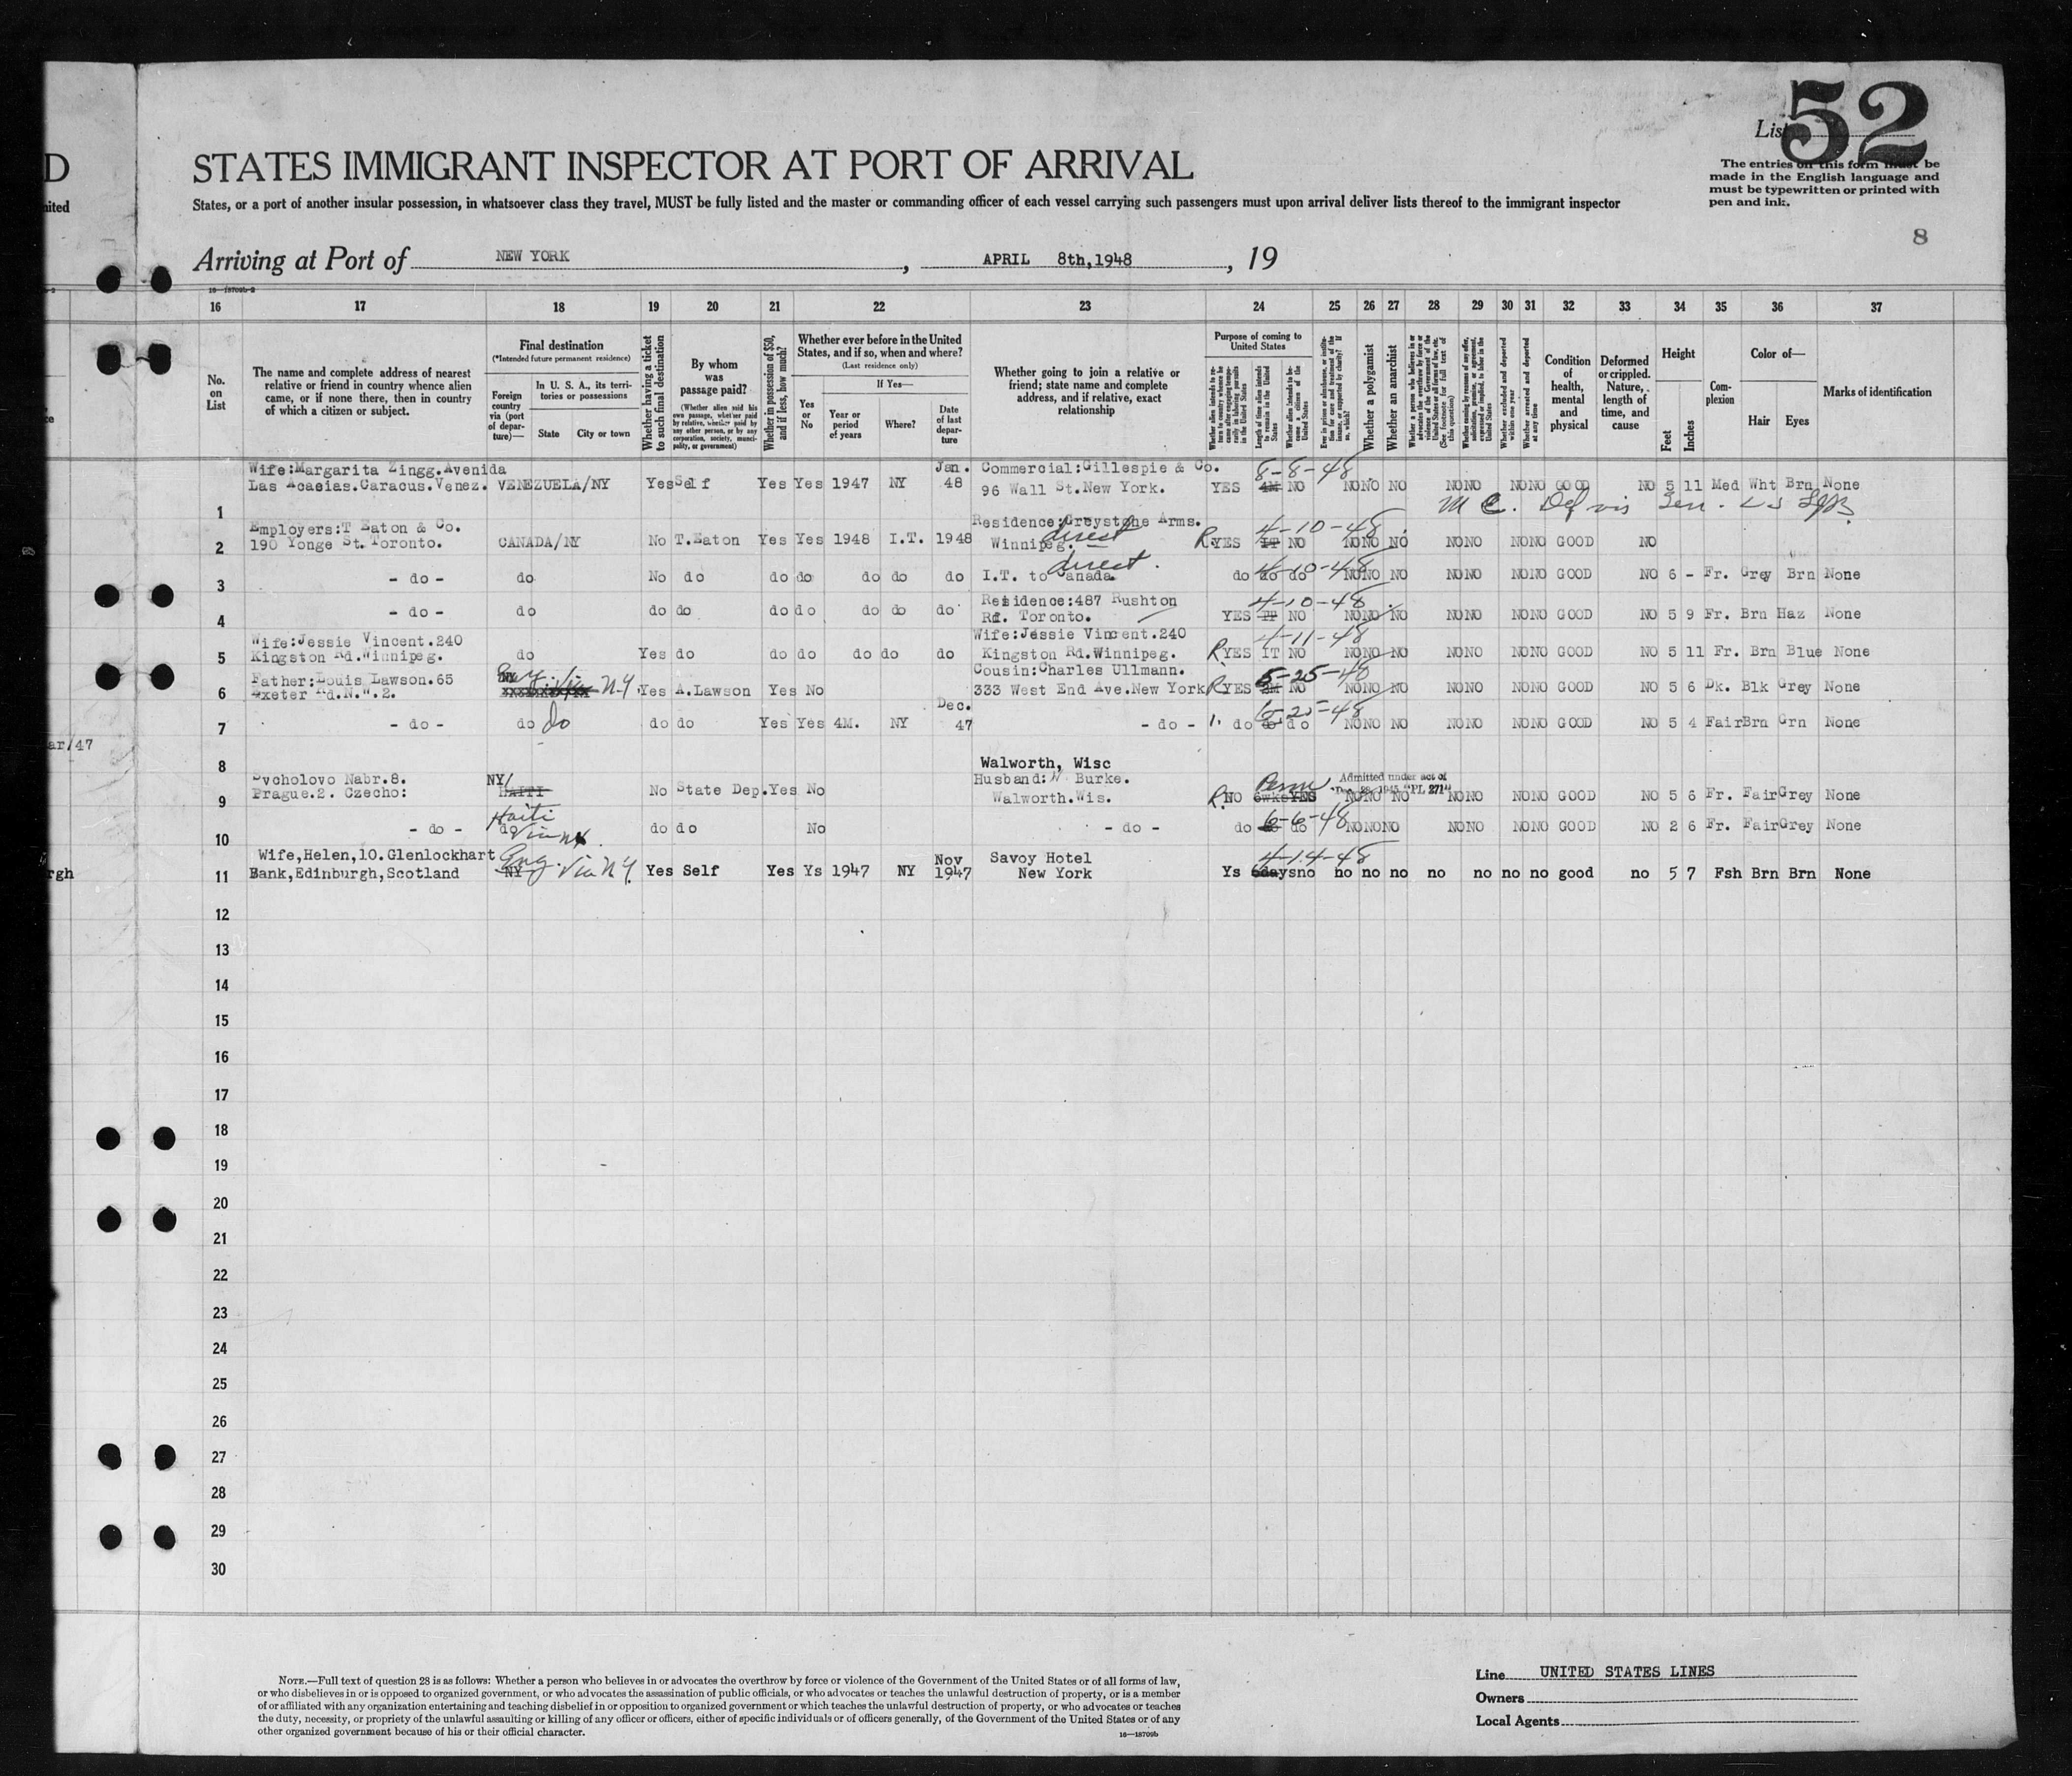 D
nited
List
52
STATES IMMIGRANT INSPECTOR AT PORT OF ARRIVAL
The entries on this form must be
made in the English language and
must be typewritten or printed with
pen and ink.
States, or a port of another insular possession, in whatsoever class they travel, MUST be fully listed and the master or commanding officer of each vessel carrying such passengers must upon arrival deliver lists thereof to the immigrant inspector
8
Arriving at Port of NEW YORK , APRIL 8th,1948 , 19
16 17 18 19 20 21 22 23 24 25 26 27 28 29 30 31 32 33 34 35 36 37
No. on List
The name and complete address of nearest relative or friend in country whence alien came, or if none there, then in country of which a citizen or subject.
Final destination
(*Intended future permanent residence)
Foreign country via (port of departure)—
In U. S. A., its territories or possessions
State
City or town
Whether having a ticket to such final destination
By whom was passage paid?
(Whether alien paid his own passage, whether paid by relative, whether paid by any other person, or by any corporation, society, municipality, or government)
Whether in possession of $50, and if less, how much?
Whether ever before in the United States, and if so, when and where?
(Last residence only)
Yes or No
If Yes—
Year or period of years
Where?
Date of last departure
Whether going to join a relative or friend; state name and complete address, and if relative, exact relationship
Purpose of coming to United States
Whether alien intends to return to country whence he came after engaging temporarily in laboring pursuits in the United States
Length of time alien intends to remain in the United States
Whether alien intends to become a citizen of the United States
Ever in prison or almshouse, or institution for care and treatment of the insane, or supported by charity? If so, which?
Whether a polygamist
Whether an anarchist
Whether a person who believes in or advocates the overthrow by force or violence of the Government of the United States or all forms of law, etc. (See footnote for full text of this question)
Whether coming by reasons of any offer, solicitation, promise, or agreement, expressed or implied, to labor in the United States
Whether excluded and deported within one year
Whether arrested and deported at any time
Condition of health, mental and physical
Deformed or crippled. Nature, length of time, and cause
Height
Feet
Inches
Complexion
Color of—
Hair
Eyes
Marks of identification
Wife:Margarita Zingg.Avenida Jan. Commercial:Gillespie & Co. 8-8-48
Las Acacias.Caracus.Venez. VENEZUELA/NY Yes Self Yes Yes 1947 NY 48 96 Wall St.New York. YES 4M NO NO NO NO NO NO NO NO GOOD NO 5 11 Med Wht Brn None
1
Employers:T Eaton & Co. Residence:Greystone Arms. direct 4-10-48
2 190 Yonge St.Toronto. CANADA/NY No T.Eaton Yes Yes 1948 I.T. 1948 Winnipeg. R YES IT NO NO NO NO NO NO NO NO GOOD NO
direct. 4-10-48
3 - do - do No do do do do do do I.T. to Canada. do do do NO NO NO NO NO NO NO GOOD NO 6 - Fr. Grey Brn None
Residence:487 Rushton 4-10-48
4 - do - do do do do do do do do Rd. Toronto. YES IT NO NO NO NO NO NO NO NO GOOD NO 5 9 Fr. Brn Haz None
Wife:Jessie Vincent.240 Wife:Jessie Vincent.240 4-11-48
5 Kingston Rd.Winnipeg. do Yes do do do do do do Kingston Rd.Winnipeg. R YES IT NO NO NO NO NO NO NO NO GOOD NO 5 11 Fr. Brn Blue None
Father:Louis Lawson.65 Cousin:Charles Ullmann. 5-25-48
6 Exeter Rd.N.W.2. Eng. via N.Y. Yes A.Lawson Yes No 333 West End Ave.New York R YES 2M NO NO NO NO NO NO NO NO GOOD NO 5 6 Dk. Blk Grey None
Dec.
7 - do - do do do do Yes Yes 4M. NY 47 - do - do do do NO NO NO NO NO NO NO GOOD NO 5 4 Fair Brn Grn None
ar/47
8 Walworth, Wisc
Nabr.8. NY/ Husband: W Burke. Perm Admitted under act of
9 Prague.2. Czecho: HAITI No State Dep. Yes No Walworth.Wis. R NO 6wks YES Dec. 28, 1945 "PL 271" NO NO NO NO NO NO NO GOOD NO 5 6 Fr. Fair Grey None
Haiti 6-6-48
10 - do - do Via NY do do No - do - do do do NO NO NO NO NO NO NO GOOD NO 2 6 Fr. Fair Grey None
Wife,Helen,10.Glenlockhart Eng. Via N.Y. Nov Savoy Hotel 4-14-48
rgh
11 Bank,Edinburgh,Scotland NY Yes Self Yes Ys 1947 NY 1947 New York Ys 6days no no no no no no no no good no 5 7 Fsh Brn Brn None
12
13
14
15
16
17
18
19
20
21
22
23
24
25
26
27
28
29
30
NOTE.—Full text of question 28 is as follows: Whether a person who believes in or advocates the overthrow by force or violence of the Government of the United States or of all forms of law,
or who disbelieves in or is opposed to organized government, or who advocates the assassination of public officials, or who advocates or teaches the unlawful destruction of property, or is a member
of or affiliated with any organization entertaining and teaching disbelief in or opposition to organized government or which teaches the unlawful destruction of property, or who advocates or teaches
the duty, necessity, or propriety of the unlawful assaulting or killing of any officer or officers, either of specific individuals or of officers generally, of the Government of the United States or of any
other organized government because of his or their official character.
16—18709b
Line UNITED STATES LINES
Owners
Local Agents